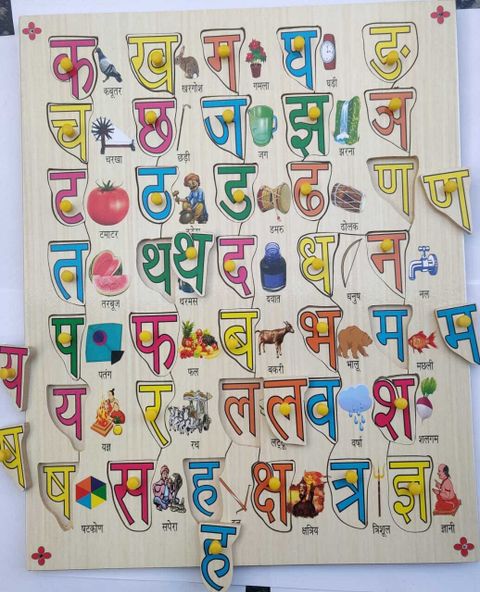 क ख ग घ ङ
कबूतर खरगोश गमला घड़ी
च छ ज झ ञ
चरखा छड़ी जग झरना
ट ठ ड ढ ण ण
टमाटर डमरु ढोलक
त थ थ द ध न
तरबूज थरमस दवात धनुष नल
प फ ब भ म म
पतंग फल बकरी भालू मछली
य य र ल ल व श
यज्ञ रथ वर्षा शलगम
ष ष स ह क्ष त्र ज्ञ
षटकोण सपेरा क्षत्रिय त्रिशूल ज्ञानी
ह